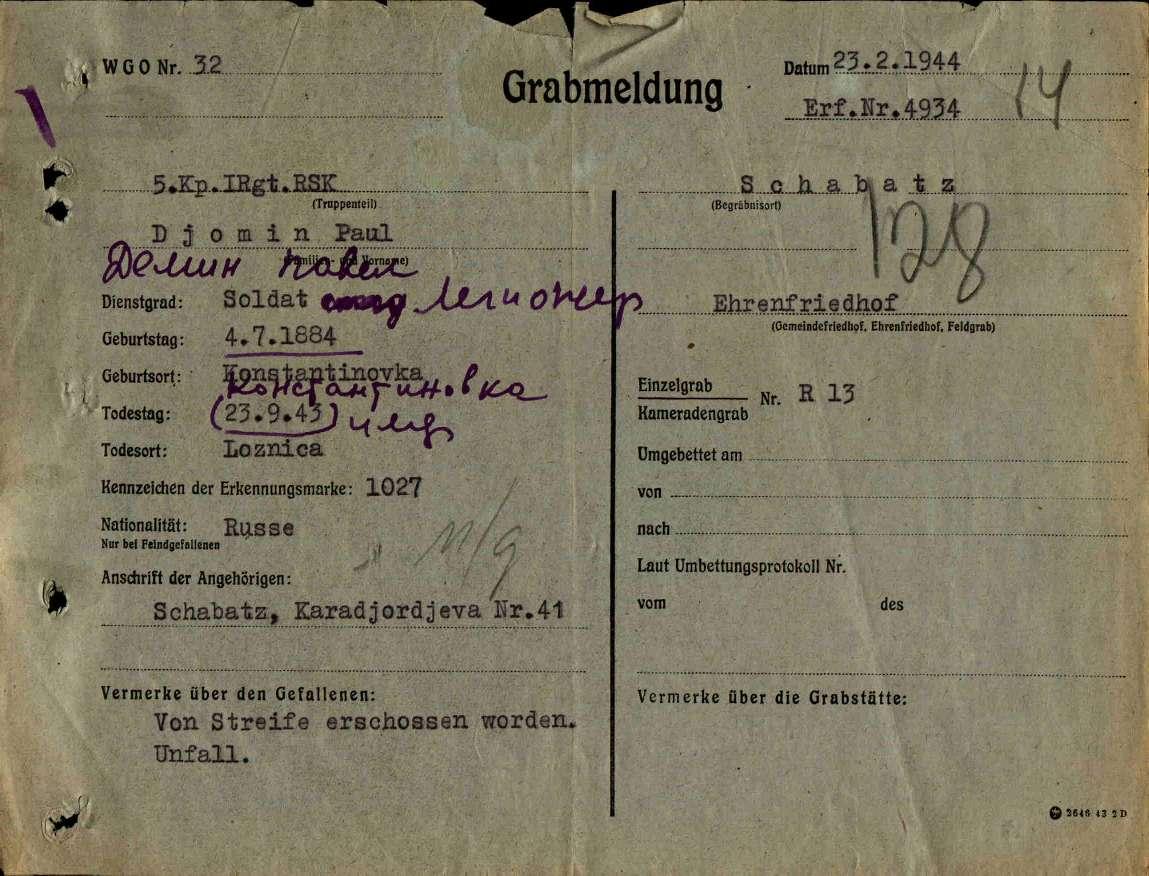 WGO Nr. 32
Grabmeldung
Datum 23.2.1944
Erf.Nr.4934
14
5.Kp.IRgt.RSK
(Truppenteil)
Djomin Paul
(Familien- und Vorname)
Демин Павел
Dienstgrad: Soldat Легионер
Geburtstag: 4.7.1884
Geburtsort: Konstantinovka
Константиновка
Todestag: (23.9.43) умер
Todesort: Loznica
Kennzeichen der Erkennungsmarke: 1027
Nationalität: Russe
Nur bei Feindgefallenen
Anschrift der Angehörigen:
Schabatz, Karadjordjeva Nr.41
Vermerke über den Gefallenen:
Von Streife erschossen worden.
Unfall.
Schabatz
(Begräbnisort)
128
Ehrenfriedhof
(Gemeindefriedhof, Ehrenfriedhof, Feldgrab)
Einzelgrab
Kameradengrab
Nr. R 13
Umgebettet am
von
nach
Laut Umbettungsprotokoll Nr.
vom des
Vermerke über die Grabstätte:
2646 43 2 D